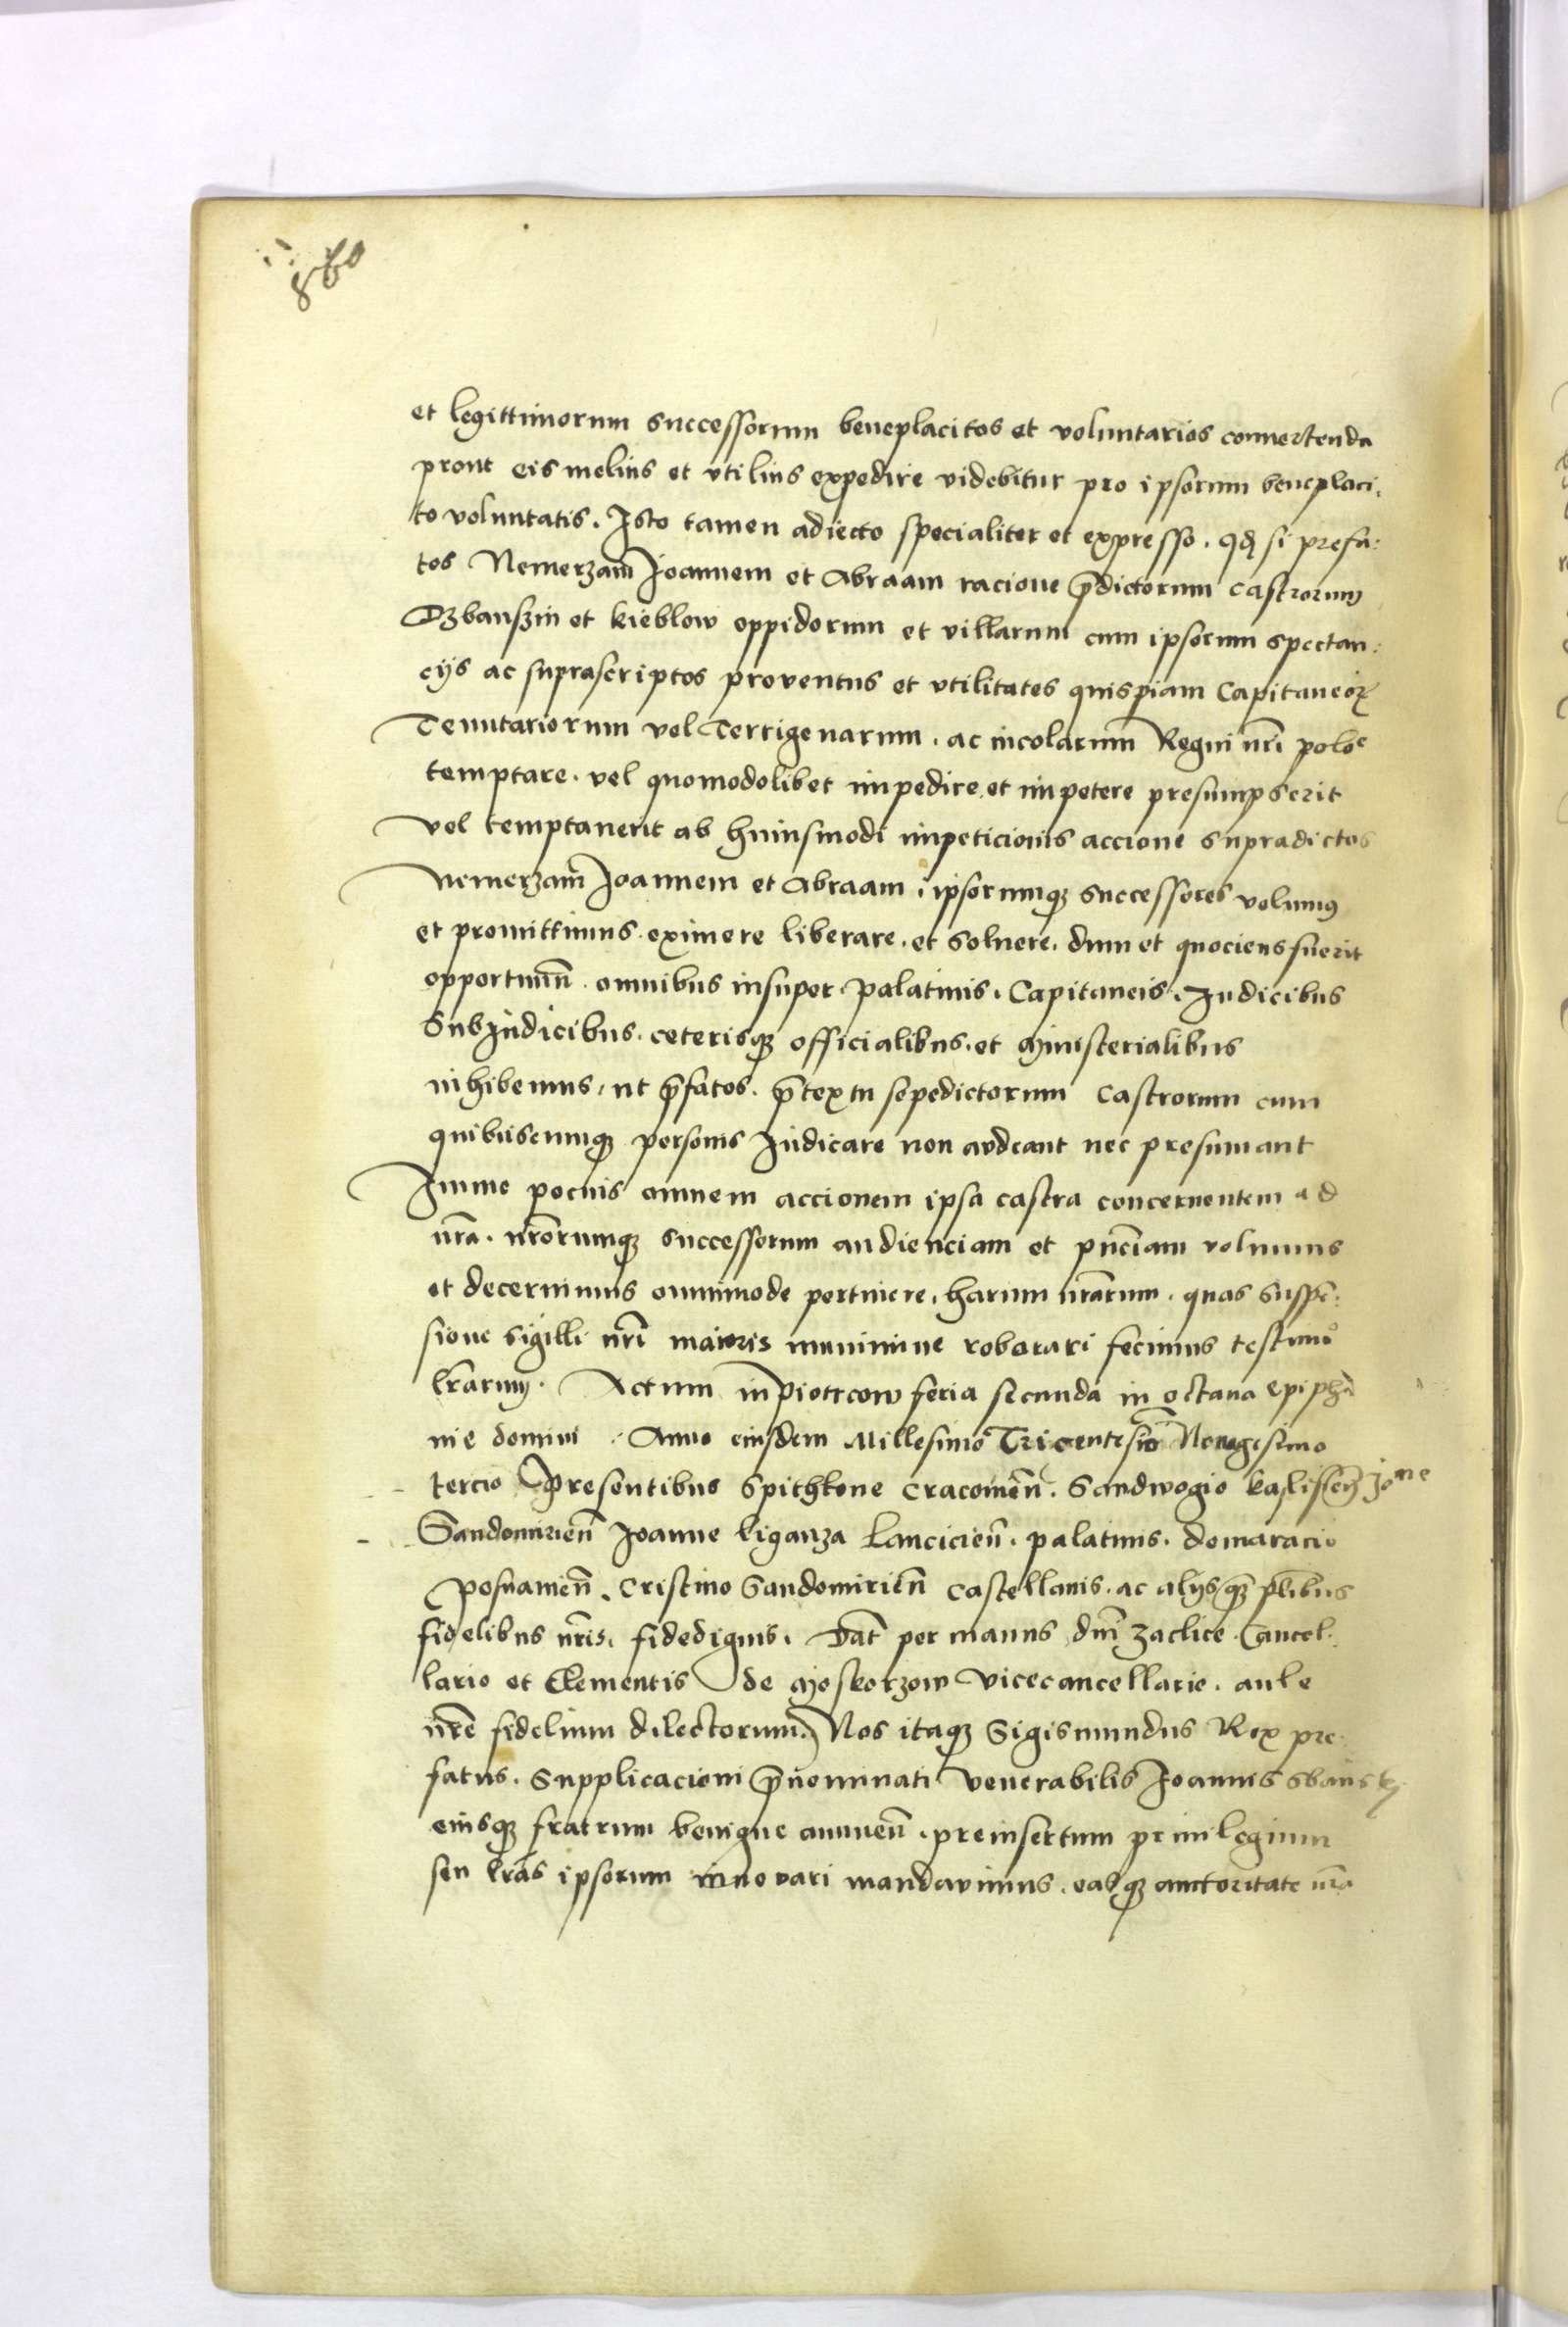 860
et legittimorum successorum beneplacitos et voluntarios convertenda
prout eis melius et vtilius expedire videbitur pro ipsorum beneplaci:
to voluntatis. Isto tamen adiecto specialiter et expresso. qd si prefa:
tos Nemerzam Joannem et Abraam racione p̄dictorum castrorum
Dzbanszin et kieblow oppidorum et villarum cum ipsorum spectan:
cijs ac suprascriptos proventus et vtilitates quispiam Capitaneoꝝ
Tenutariorum vel Terrigenarum. ac incolarum Regni nr̄i poloe
temptare. vel quomodolibet impedire et impetere presumpserit
vel temptauerit ab huiusmodi impeticionis accione supradictos
Nemerzam Joannem et Abraam. ipsorumqꝫ successores volumus
et promittimus eximere liberare. et soluere. dum et quociens fuerit
opportunū. omnibus insuper. palatinis. Capitaneis. Iudicibus
Subiudicibus. ceterisqꝫ officialibus. et ministerialibus
inhibemus, ut p̄fatos. p̄textu sepedictorum castrorum cum
quibuscumqꝫ personis Iudicare non avdeant nec presumant
Immo pocius omnem accionem ipsa castra concernentem ad
nr̄a. nr̄orumqꝫ successorum audienciam et pn̄ciam volumus
et decernimus omnimode pertinere. harum nr̄arum. quas suspē:
sione sigilli nr̄i maioris munimine roborari fecimus testimō
lr̄arum. Actum in piotrcow feria secunda in octaua epiphā
nie domini. Anno eiusdem Millesimo Tricentesimo Nonagesimo
tercio Presentibus Spithkone Cracouien̄. Sandwogio kalissień Joāne
Sandomirien̄ Joanne liganza Lancicien̄. palatinis. domaracio
posnanien̄. Cristino Sandomirien̄ Castellanis. ac alijsqꝫ pl̄ibus
fidelibus nr̄is. fidedignis. Dat̄ per manus dn̄i zaclice Cancel:
lario et Clementis de Moskorzow Vicecancellario. aule
nr̄e fidelium dilectorum. Nos itaqꝫ Sigismundus Rex pre:
fatus. Supplicacioni p̄nominati Venerabilis Joannis sbanskj
eiusqꝫ fratrum benigne annuen̄. preinsertum priuilegium
seu lr̄as ipsorum innovari mandavimus. easqꝫ auctoritate nr̄a